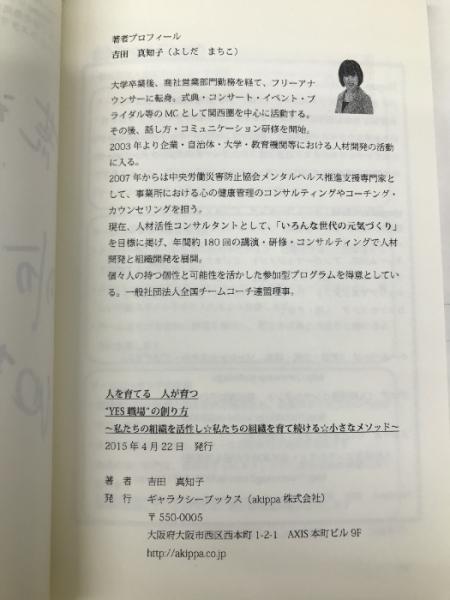 著者プロフィール
吉田　真知子（よしだ　まちこ）
大学卒業後、商社営業部門勤務を経て、フリーアナ
ウンサーに転身。式典・コンサート・イベント・ブ
ライダル等のMCとして関西圏を中心に活動する。
その後、話し方・コミュニケーション研修を開始。
2003年より企業・自治体・大学・教育機関等における人材開発の活動
に入る。
2007年からは中央労働災害防止協会メンタルヘルス推進支援専門家と
して、事業所における心の健康管理のコンサルティングやコーチング・
カウンセリングを担う。
現在、人材活性コンサルタントとして、「いろんな世代の元気づくり」
を目標に掲げ、年間約180回の講演・研修・コンサルティングで人材
開発と組織開発を展開。
個々人の持つ個性と可能性を活かした参加型プログラムを得意としてい
る。一般社団法人全国チームコーチ連盟理事。
人を育てる　人が育つ
“YES職場”の創り方
～私たちの組織を活性し☆私たちの組織を育て続ける☆小さなメソッド～
2015年4月22日　発行
著　者　　吉田　真知子
発　行　　ギャラクシーブックス（akippa株式会社）
〒550-0005
大阪府大阪市西区西本町1-2-1　AXIS本町ビル9F
http://akippa.co.jp